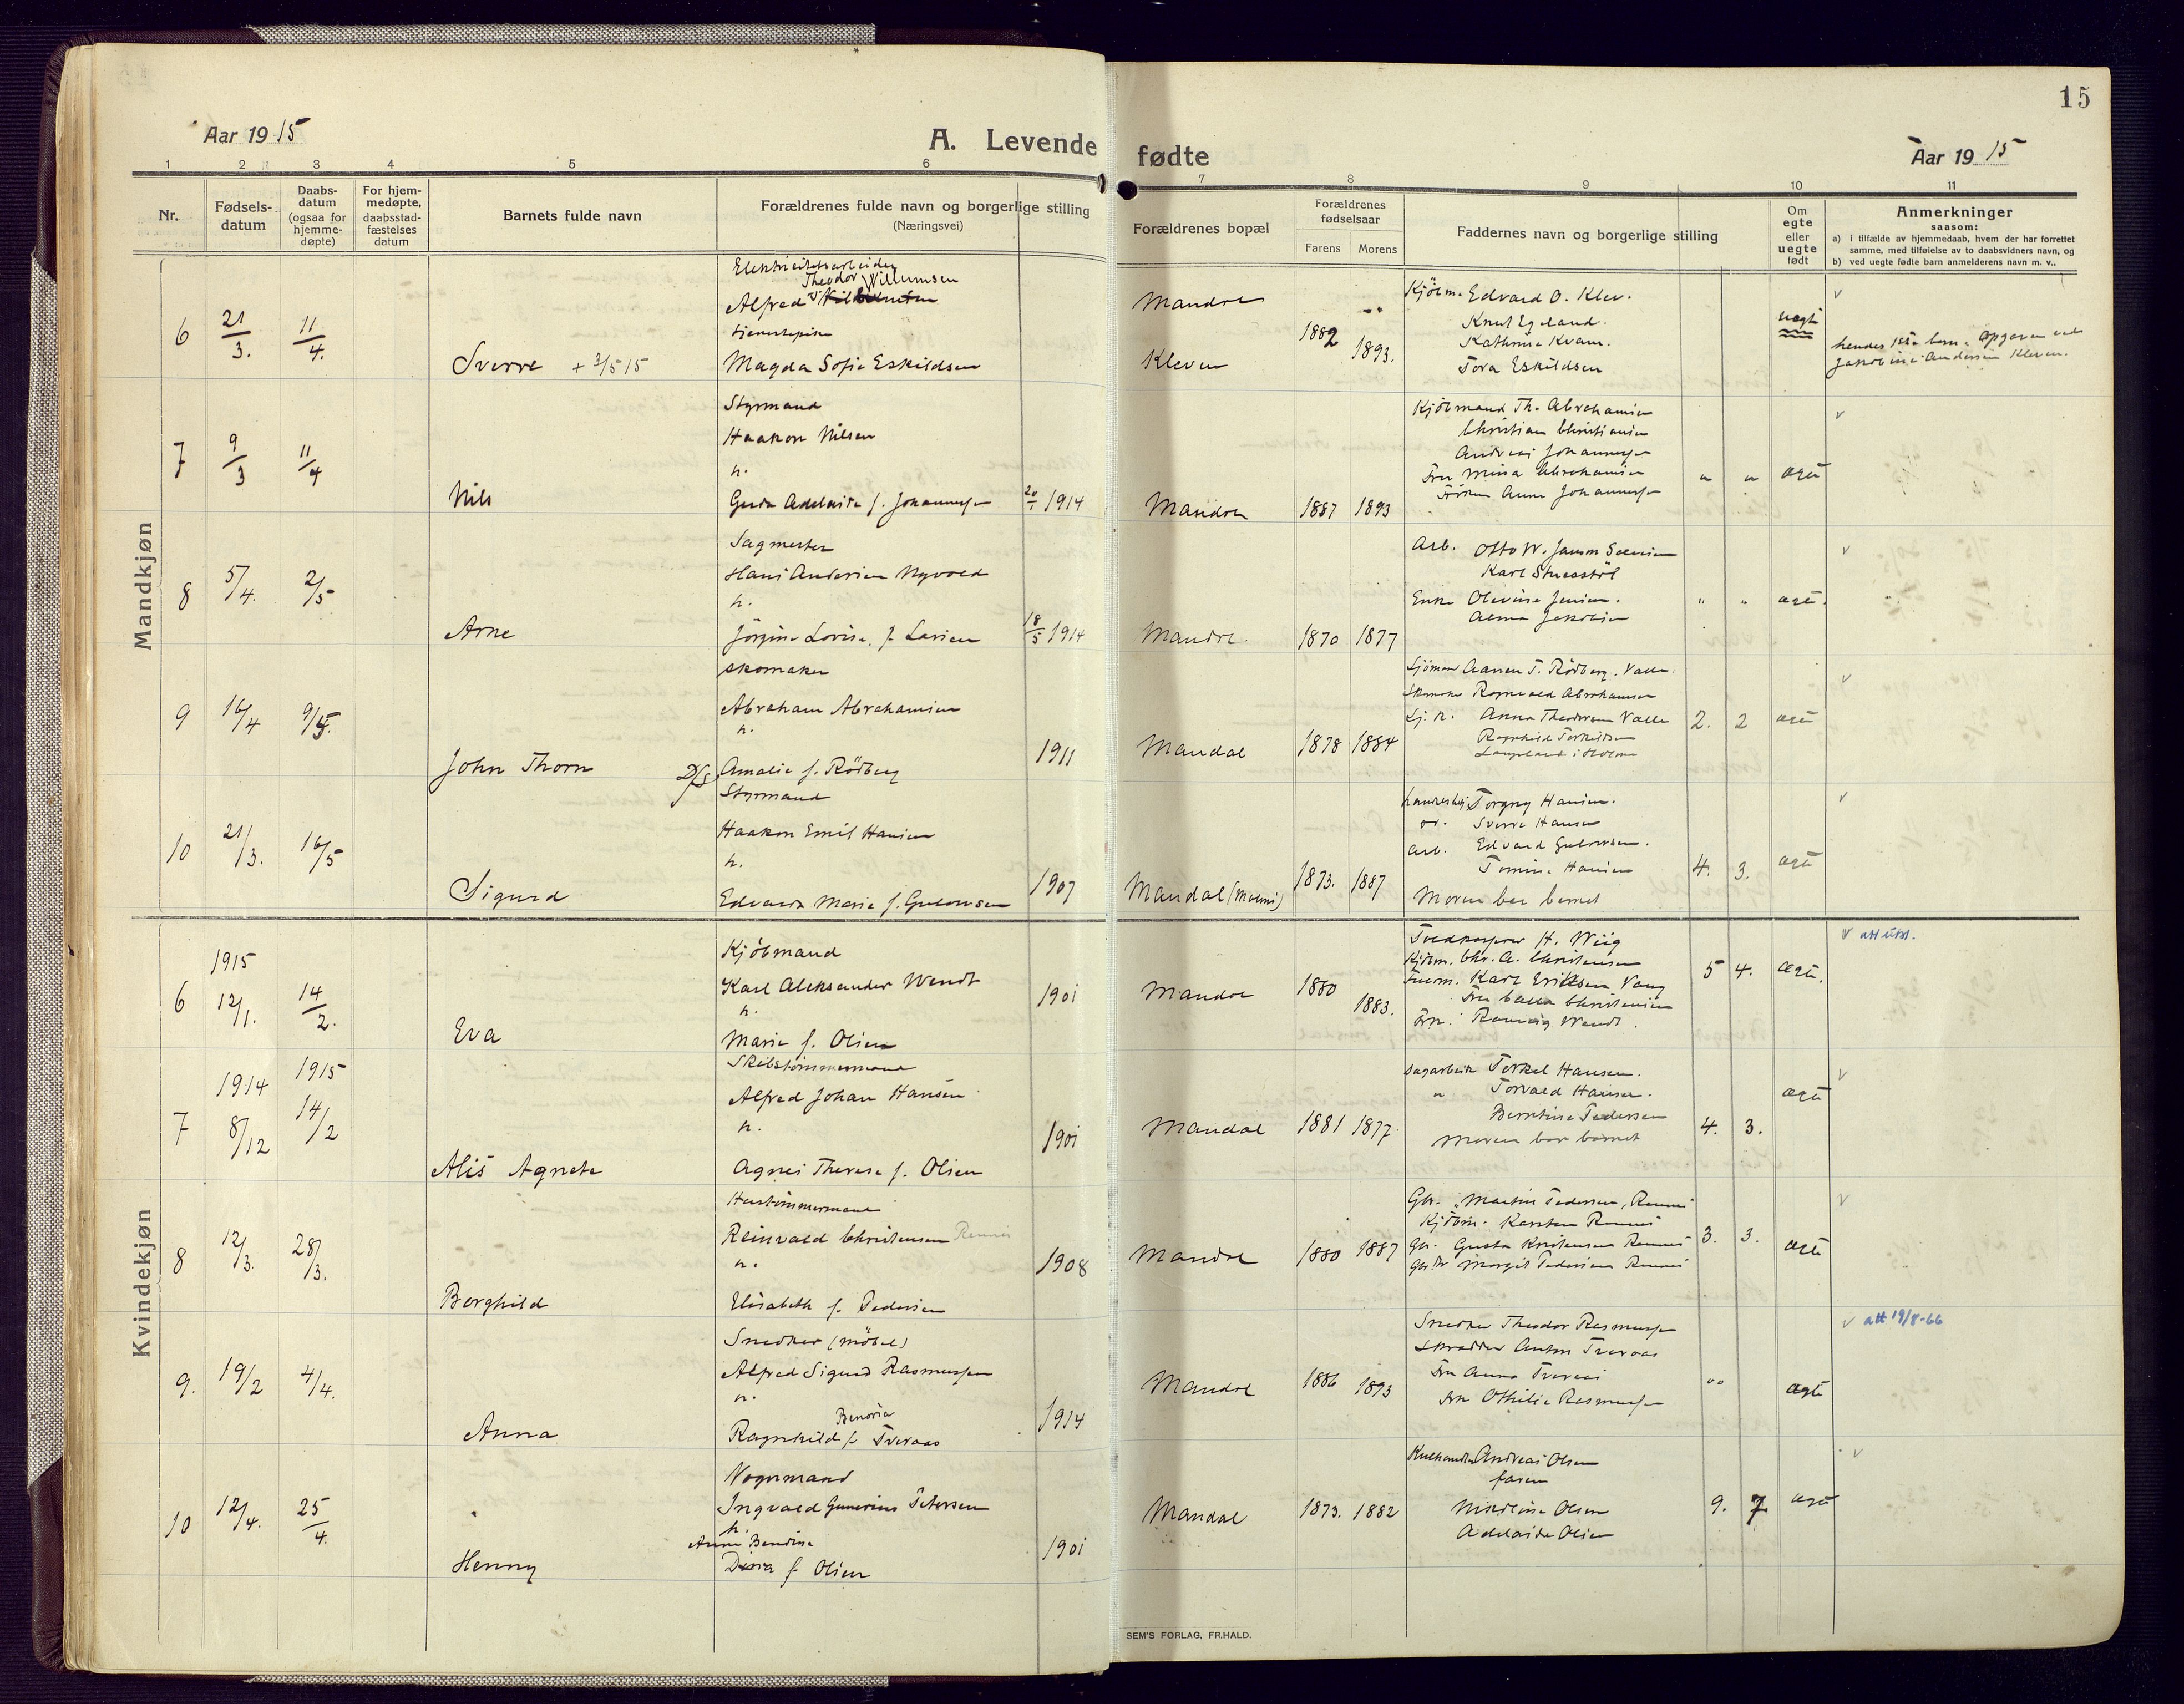 15
Aar 1915
A. Levende fødte
Aar 1915
1 2 3 4 5 6 7 8 9 10 11
Nr.
Fødsels-
datum
Daabs-
datum
(ogsaa for
hjemme-
døpte)
For hjem-
medøpte,
daabsstad-
fæstelses
datum
Barnets fulde navn
Forældrenes fulde navn og borgerlige stilling
(Næringsvei)
Forældrenes bopæl
Forældrenes
fødselsaar
Farens Morens
Faddernes navn og borgerlige stilling
Om
egte
eller
uegte
født
Anmerkninger
saasom:
a) i tilfælde av hjemmedaab, hvem der har forrettet
samme, med tilføielse av to daabsvidners navn, og
b) ved uegte fødte barn anmelderens navn m. v..
Mandkjøn
6 21/3. 11/4.
Sverre + 3/5 15
Elektricitetsarbeider
Theodor Willumsen
Alfred
tjenestepike
Magda Sofie Eskildsen
Mandal
Kleven
1882 1893.
Kjöbm. Edvard O. Klev.
Knut Egeland.
Kathrine Kvam.
Tora Eskildsen
uegte
hendes 1ste barn. opgaven ved
Jakobine Andersen Kleven.
7 9/3 11/4
Nils
Styrmand
Haakon Nilsen
h.
Gerda Adelaide f. Johannessen
1914
Mandal
1887 1893
Kjöbmand Th. Abrahamsen
Christian Christiansen
Andreas Johannessen
Fru Mina Abrahamsen
Fröken Anna Johannessen
" "
egte
8 5/4. 2/5
Arne
Sagmester
Hans Andersen Nyvold
h.
Jörgine Lovise. f. Larsen
18/5 1914
Mandal.
1870 1877
Arb. Otto W. Jansen
Karl
Enke Olevine Jensen.
Alma Jakobsen
" "
egte.
9 16/4 9/5.
John Thorn
skomaker
Abraham Abrahamsen
h.
Amalie f. Rödberg
1911
Mandal
1878 1884
Sjömand Aanen T. Rödberg. Valle.
Skomaker Romuald Abrahamsen
Sj. h. Anna Theodorsen Valle
Ragnhild Torkildsen
2. 2
egte
10 21/3. 16/5
Sigurd
Styrmand
Haakon Emil Hansen
h.
Edvarda Marie f. Gulowsen
1907
Mandal (Malmö)
1873. 1887
Torgny Hansen.
Sverre Hansen
Arb. Edvard Gulowsen.
Tomine Hansen
Moren bar barnet
4. 3.
egte
Kvindekjøn
6 1915 12/1. 14/2.
Eva
Kjöbmand
Karl Aleksander Wendt
h.
Marie f. Olsen
1901
Mandal
1880 1883.
H. Wiig
Kjöbm. Chr. A. Christensen
Karl Eriksen Vang
Fru Christensen
Frk. Ranveig Wendt.
5 4.
egte.
att utst.
7 1914 8/12 1915 14/2
Alis Agnete
Skibstömmermand
Alfred Johan Hansen
h.
Agnes Therese f. Olsen
1901
Mandal
1881 1877.
Sagarbeider Torkel Hansen.
" Torvald Hansen.
Berntine Pedersen
Moren bar barnet
4. 3.
egte
8 12/3. 28/3.
Borghild
Hustömmermand
Reinvald Christensen Rennes
h.
Elisabeth f. Pedersen
1908
Mandal
1880 1887
Gbr. Martin Pedersen, Rennes
Kjöbm. Karsten Rennes
Gbr. Gusta Kristensen Rennes
Margit Pedersen Rennes
3. 3.
egte
9. 19/2 4/4.
Anna
Snedker (möbel)
Alfred Sigurd Rasmussen
h.
Benoria
Ragnhild f. Tveraas
1914
Mandal
1886 1893
Snedker Theodor Rasmussen
Skrædder Anton Tveraas
Fru Anna Tveraas
Frk. Othilie Rasmussen
"
egte
att 19/8-66
10 12/4. 25/4.
Henny
Vognmand
Ingvald Gunerius Petersen
h.
Anne Bendine
Dina f. Olsen
1901
Mandal
1873. 1882
Andreas Olsen
faren
Olsen
Adelaide Olsen
9. 7
egte
SEM'S FORLAG, FR.HALD.